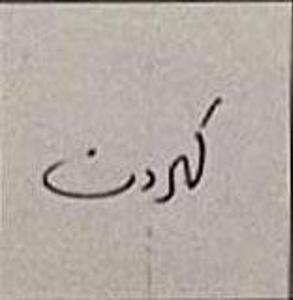 کردن